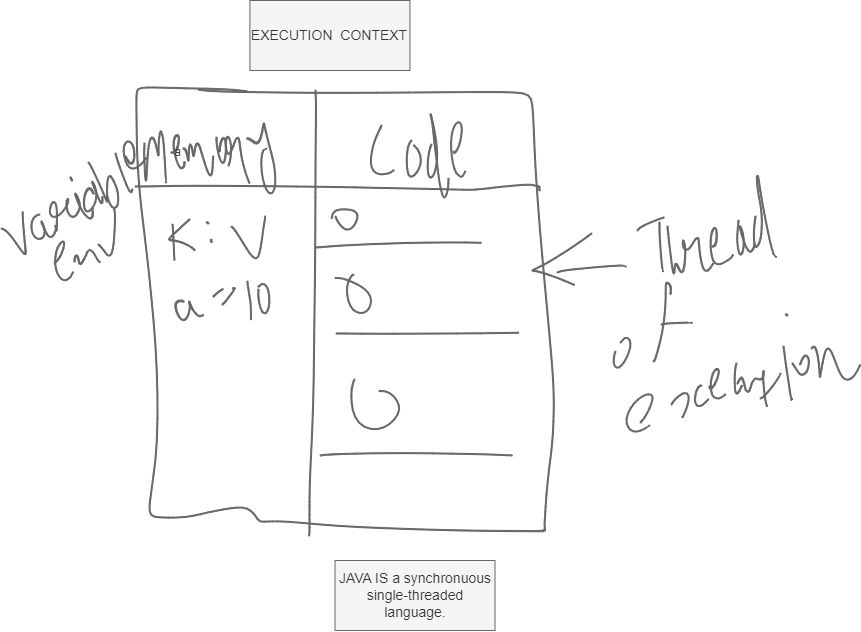 EXECUTION CONTEXT
variable
env
memory
Code
K: V
a => 10
Thread
of
execution
JAVA IS a synchronuous
single-threaded
language.